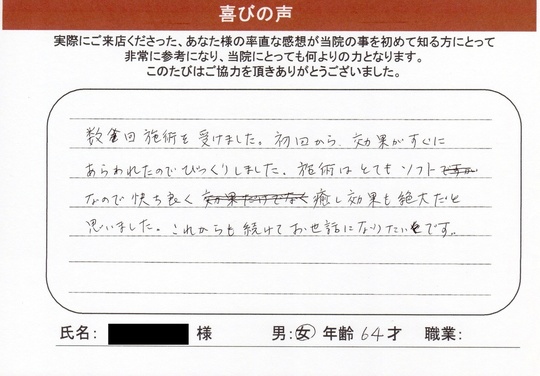 喜びの声
実際にご来店くださった、あなた様の率直な感想が当院の事を初めて知る方にとって
非常に参考になり、当院にとっても何よりの力となります。
このたびはご協力を頂きありがとうございました。
数回施術を受けました。初回から、効果がすぐに
あらわれたのでびっくりしました。施術はとてもソフト
なので快ち良く効果だけでなく癒し効果も絶大だと
思いました。これからも続けてお世話になりたいです。
氏名: 様 男:女 年齢 64才 職業: